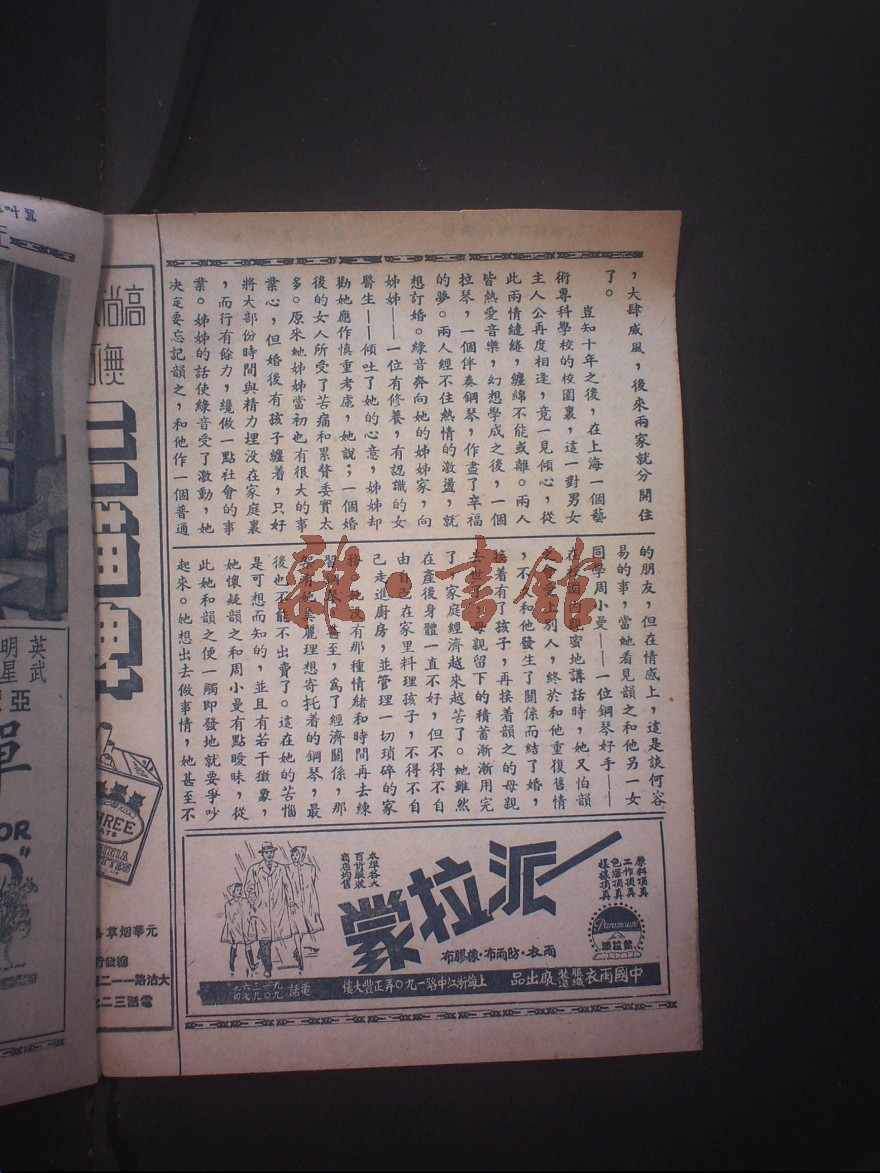 ，大肆威風，後來兩家就分開住
了。
豈知十年之後，在上海一個藝
術專科學校的校園裏，這一對男女
主人公再度相逢，竟一見傾心，從
此兩情繾綣，纏綿不能或離。兩人
皆熱愛音樂，幻想學成之後，一個
拉琴，一個伴奏鋼琴，作盡了幸福
的夢。兩人經不住熱情的激盪，就
想訂婚。綠音奔向她的姊姊家，向
姊姊——一位有修養，有認識的女
醫生——傾吐了她的心意，姊姊却
勸她應作慎重考慮，她說；一個婚
後的女人所受了苦痛和累贅委實太
多。原來她姊姊當初也有很大的事
業心，但婚後有孩子纏着，只好
將大部份時間與精力埋没在家庭裏
，而行有餘力，纔做一點社會的事
業。姊姊的話使綠音受了激動，她
决定要忘記韻之，和他作一個普通
的朋友，但在情感上，這是談何容
易的事，當她看見韻之和他另一女
同學周小曼——一位鋼琴好手——
在校園內親蜜地講話時，她又怕韻
之會愛上別人，終於和他重復舊情
，不，和他發生了關係而結了婚，
接着有了孩子，再接着韻之的母親
去世，母親留下的積蓄漸漸用完
了，家庭經濟越來越苦了。她雖然
在產後身體一直不好，但不得不自
由自己在家里料理孩子，不得不自
己走進廚房，並管理一切瑣碎的家
務，她沒有那種情緒和時間再去練
習鋼琴，甚至，爲了經濟關係，那
架有她美麗理想寄托着的鋼琴，最
後也不能不出賣了。這在她的苦惱
是可想而知的，並且有若干徵象，
她懷疑韻之和周小曼有點曖昧，從
此她和韻之便一觸即發地就要爭吵
起來。她想出去做事情，她甚至不
派拉蒙
原料頂真
工作頂真
色澤頂真
樣樣頂真
Paramount
派拉蒙
本埠各大
百貨服裝
商店均售
雨衣·防雨布·橡膠布
中國雨衣服裝織造廠出品
上海浙江中路一九〇弄正豐大樓
電話
高尚
無
三貓牌
THREE
CATS
元華烟草
總發行
大沽路一一二
電話三二七
英武
明星
亞
單
OR
雜·書館